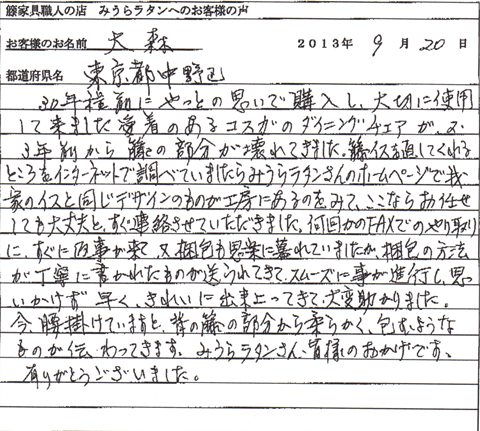 籐家具職人の店　みうらラタンへのお客様の声
お客様のお名前　大森　2013年 9月 20日
都道府県名　東京都中野区
30年程前にやっとの思いで購入し、大切に使用
して来ました愛着のあるコスガのダイニングチェアが、2、
3年前から籐の部分が壊れてきました。籐イスを直してくれる
ところをインターネットで調べていましたらみうらラタンさんのホームページで我
家のイスと同じデザインのものが工房にあるのをみて、ここならお任せ
しても大丈夫と、すぐ連絡させていただきました。何回かのFAXでのやり取り
に、すぐに返事が来て、又梱包も思案に暮れていましたが、梱包の方法
が丁寧に書かれたものが送られてきて、スムーズに事が進行し、思
いがけず早く、きれいに出来上ってきて、大変助かりました。
今、腰掛けていますと、背の籐の部分から柔らかく、包むような
ものが伝わってきます。みうらラタンさん、皆様のおかげです。
ありがとうございました。